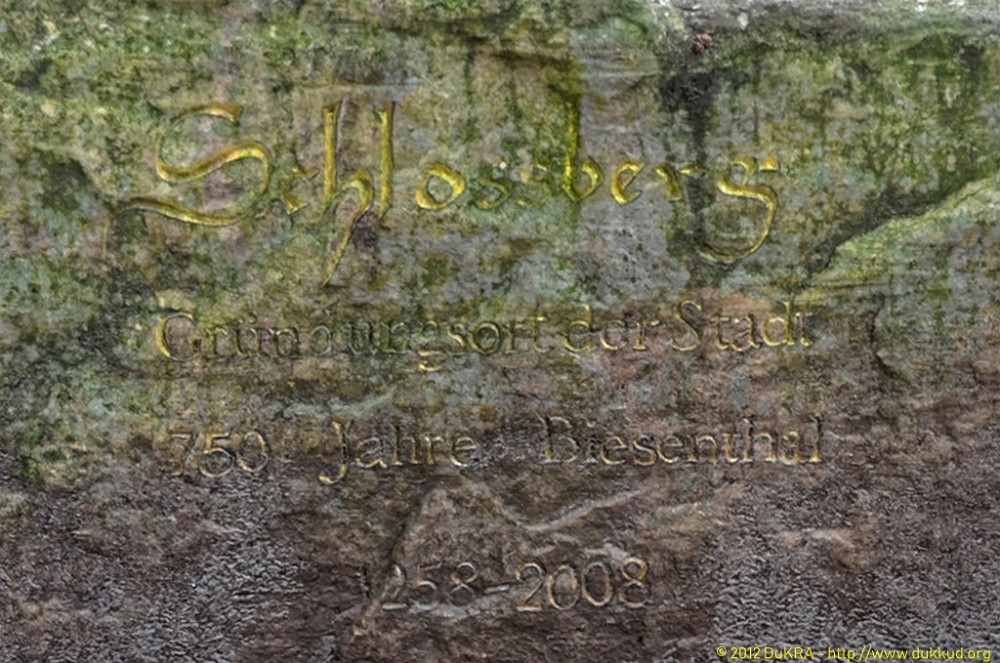 Schlossberg
Gründungsort der Stadt
750 Jahre Biesenthal
1258-2008
© 2012 DuKRA - http://www.dukkud.org